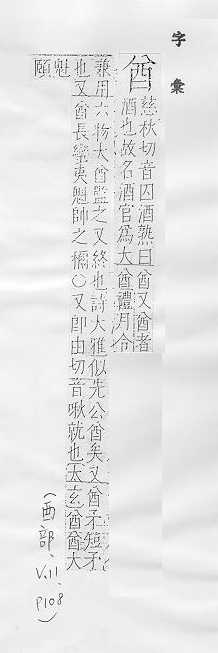 字彙
酋 慈秋切音囚酒熟曰酋又酋者
酒也故名酒官為大酋禮月令
兼用六物大酋監之又終也詩大雅似先公酋矣又酋矛短矛
也又酋長蠻夷魁帥之稱○又卽由切音啾就也太玄酋酋大
魁
頤
(酉部、V.11、P108)